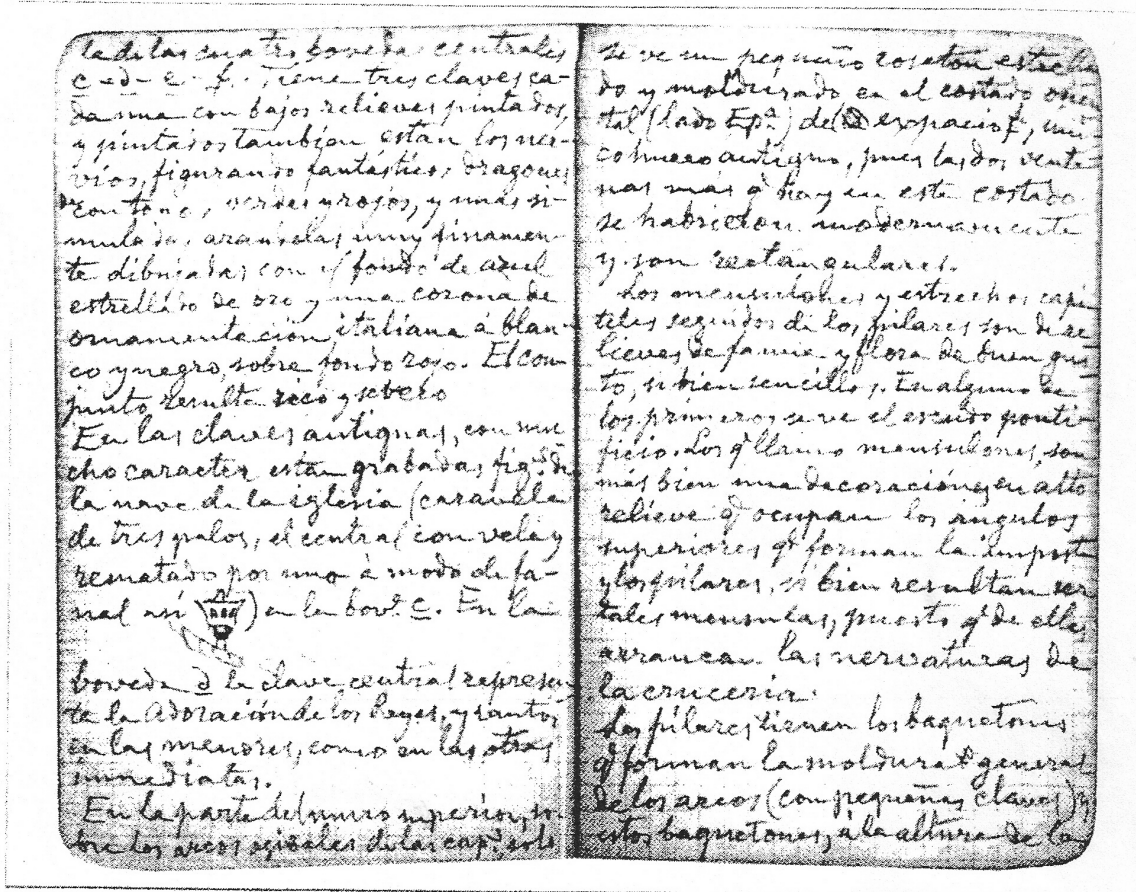 la de las cuatro bovedas centrales
c - d - e - f. Tiene tres claves ca-
da una con bajos relieves pintados,
y pintados tambien estan los ner-
vios, figurando fantásticos dragones
con tonos, verdes y rojos, y unas si-
muladas arandelas muy finamen-
te dibujadas con fondo de azul
estrellado de oro y una corona de
ornamentacion italiana á blan-
co y negro, sobre fondo rojo. El con-
junto resulta rico y severo
En las claves antiguas, con mu-
cho caracter estan grabadas fig.s de
la nave de la iglesia (carabela
de tres palos, el central con vela y
rematado por uno á modo de fa-
nal así ) en la bov.a c. En la
boveda d la clave central represen-
ta la Adoración de los Reyes, y santos
en las menores, como en las otras
inmediatas.
En la parte del muro superior, so-
bre los arcos ogivales de las cap.s, solo
se ve un pequeño roseton estrella
do y moldurado en el costado orien
tal (lado Ep.a) de expacio f, uni
co hueco antiguo, pues las dos venta
nas más q hay en este costado
se habrieron modernamente
y son rectangulares.
Los mensulones y estrechos capi
teles seguidos de los pilares son de re
lieves de fauna y flora de buen gus
to, si bien sencillos. En alguno de
los primeros se ve el escudo ponti-
ficio. Los q llamo mensulones, son
más bien una decoración en alto
relieve q ocupan los angulos
superiores q forman la imposta
y los pilares, si bien resultan ser
tales mensulas, puesto q de ellas
arrancan las nervaturas de
la cruceria.
Los pilares tienen los baquetones
q forman la moldura general
de los arcos (con pequeñas claves) y
estos baquetones, á la altura de la